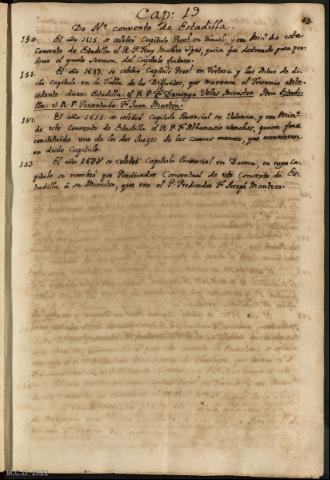 Cap: 19
De Nro convento de Estadilla.
150. El año 1615 se celebró Capitulo Provl en Teruel, y era Minro de este
Convento de Estadilla el R. P. Fray Matheo, quien fue destinado para pre-
dicar el quarto Sermon del Capitulo futuro.
151. El año 1637 se celebró Capitulo Provl en Tortosa, y las Actas de di-
cho Capitulo en la Tabla de Difuntos, que murieron el Trienio ante-
cedente dicen: Estadilla: el R. P. F. Domingo Ministro. Item Estadi-
lla: el R. P. Presentado Fr. Juan Martin.
152. El año 1655 se celebró Capitulo Provincial en Valencia, y era Minro
de este Convento de Estadilla el R. P. Fr. Athanasio Sanchez, quien fue
constituido uno de los dos Juezes de las causas menores, que ocurrieren
en dicho Capitulo.
153. El año 1684 se celebró Capitulo Provincial en Daroca, en cuyo Ca-
pitulo se nombró por Predicador Conventual de este Convento de Es-
tadilla á su Ministro, que era el P. Predicador Fr. Joseph Montero.
M.C.D. 2022